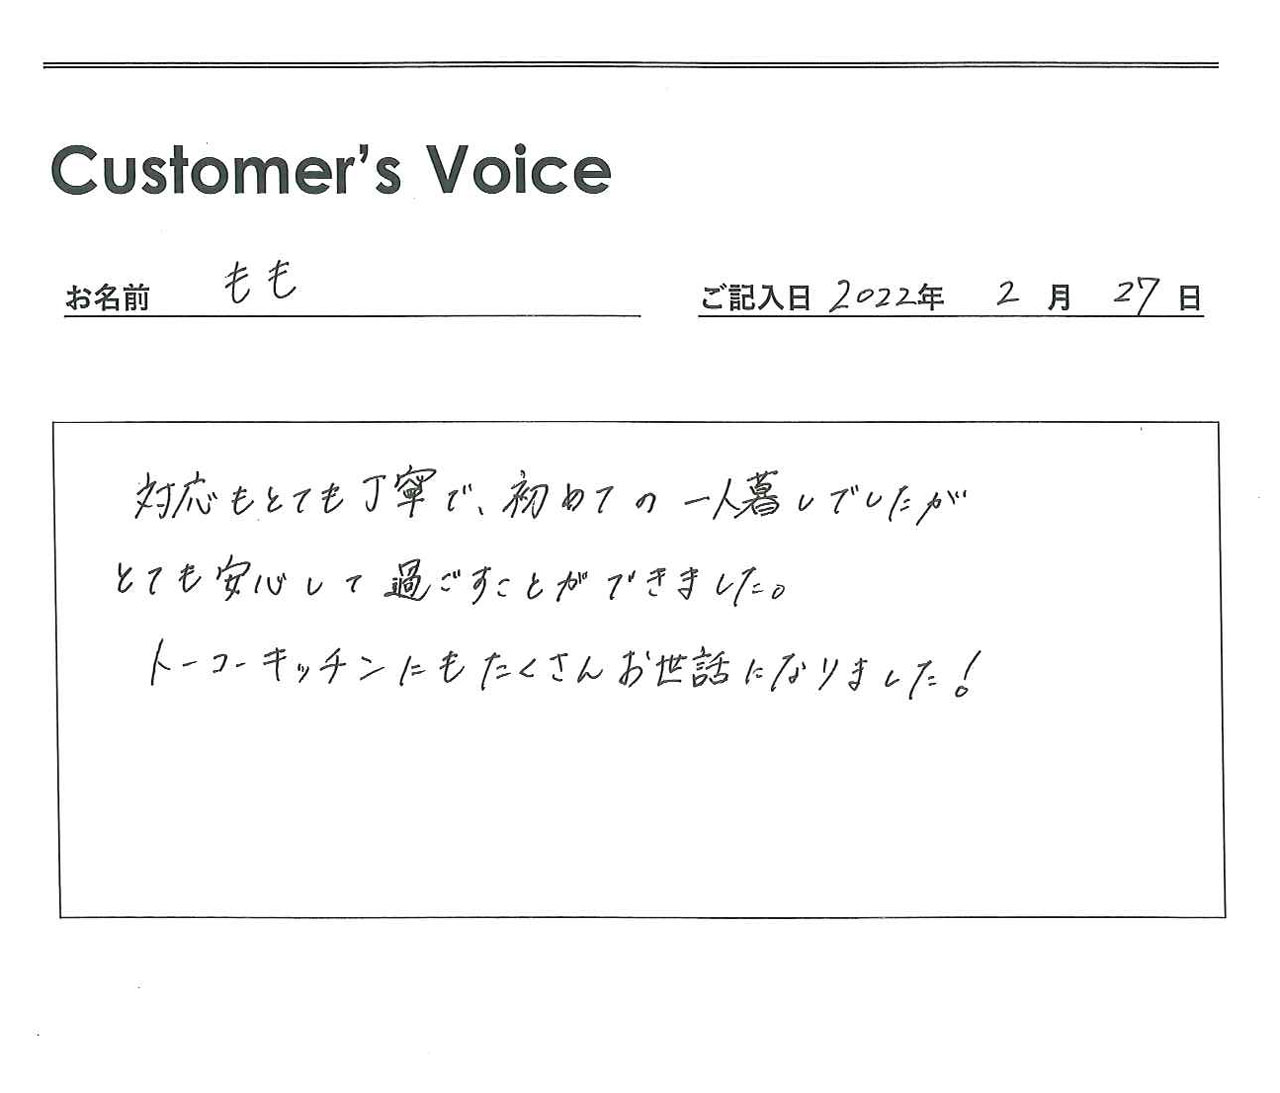 Customer's Voice
お名前 もも ご記入日 2022年 2月 27日
対応もとても丁寧で、初めての一人暮しでしたが
とても安心して過ごすことができました。
トーコーキッチンにもたくさんお世話になりました!